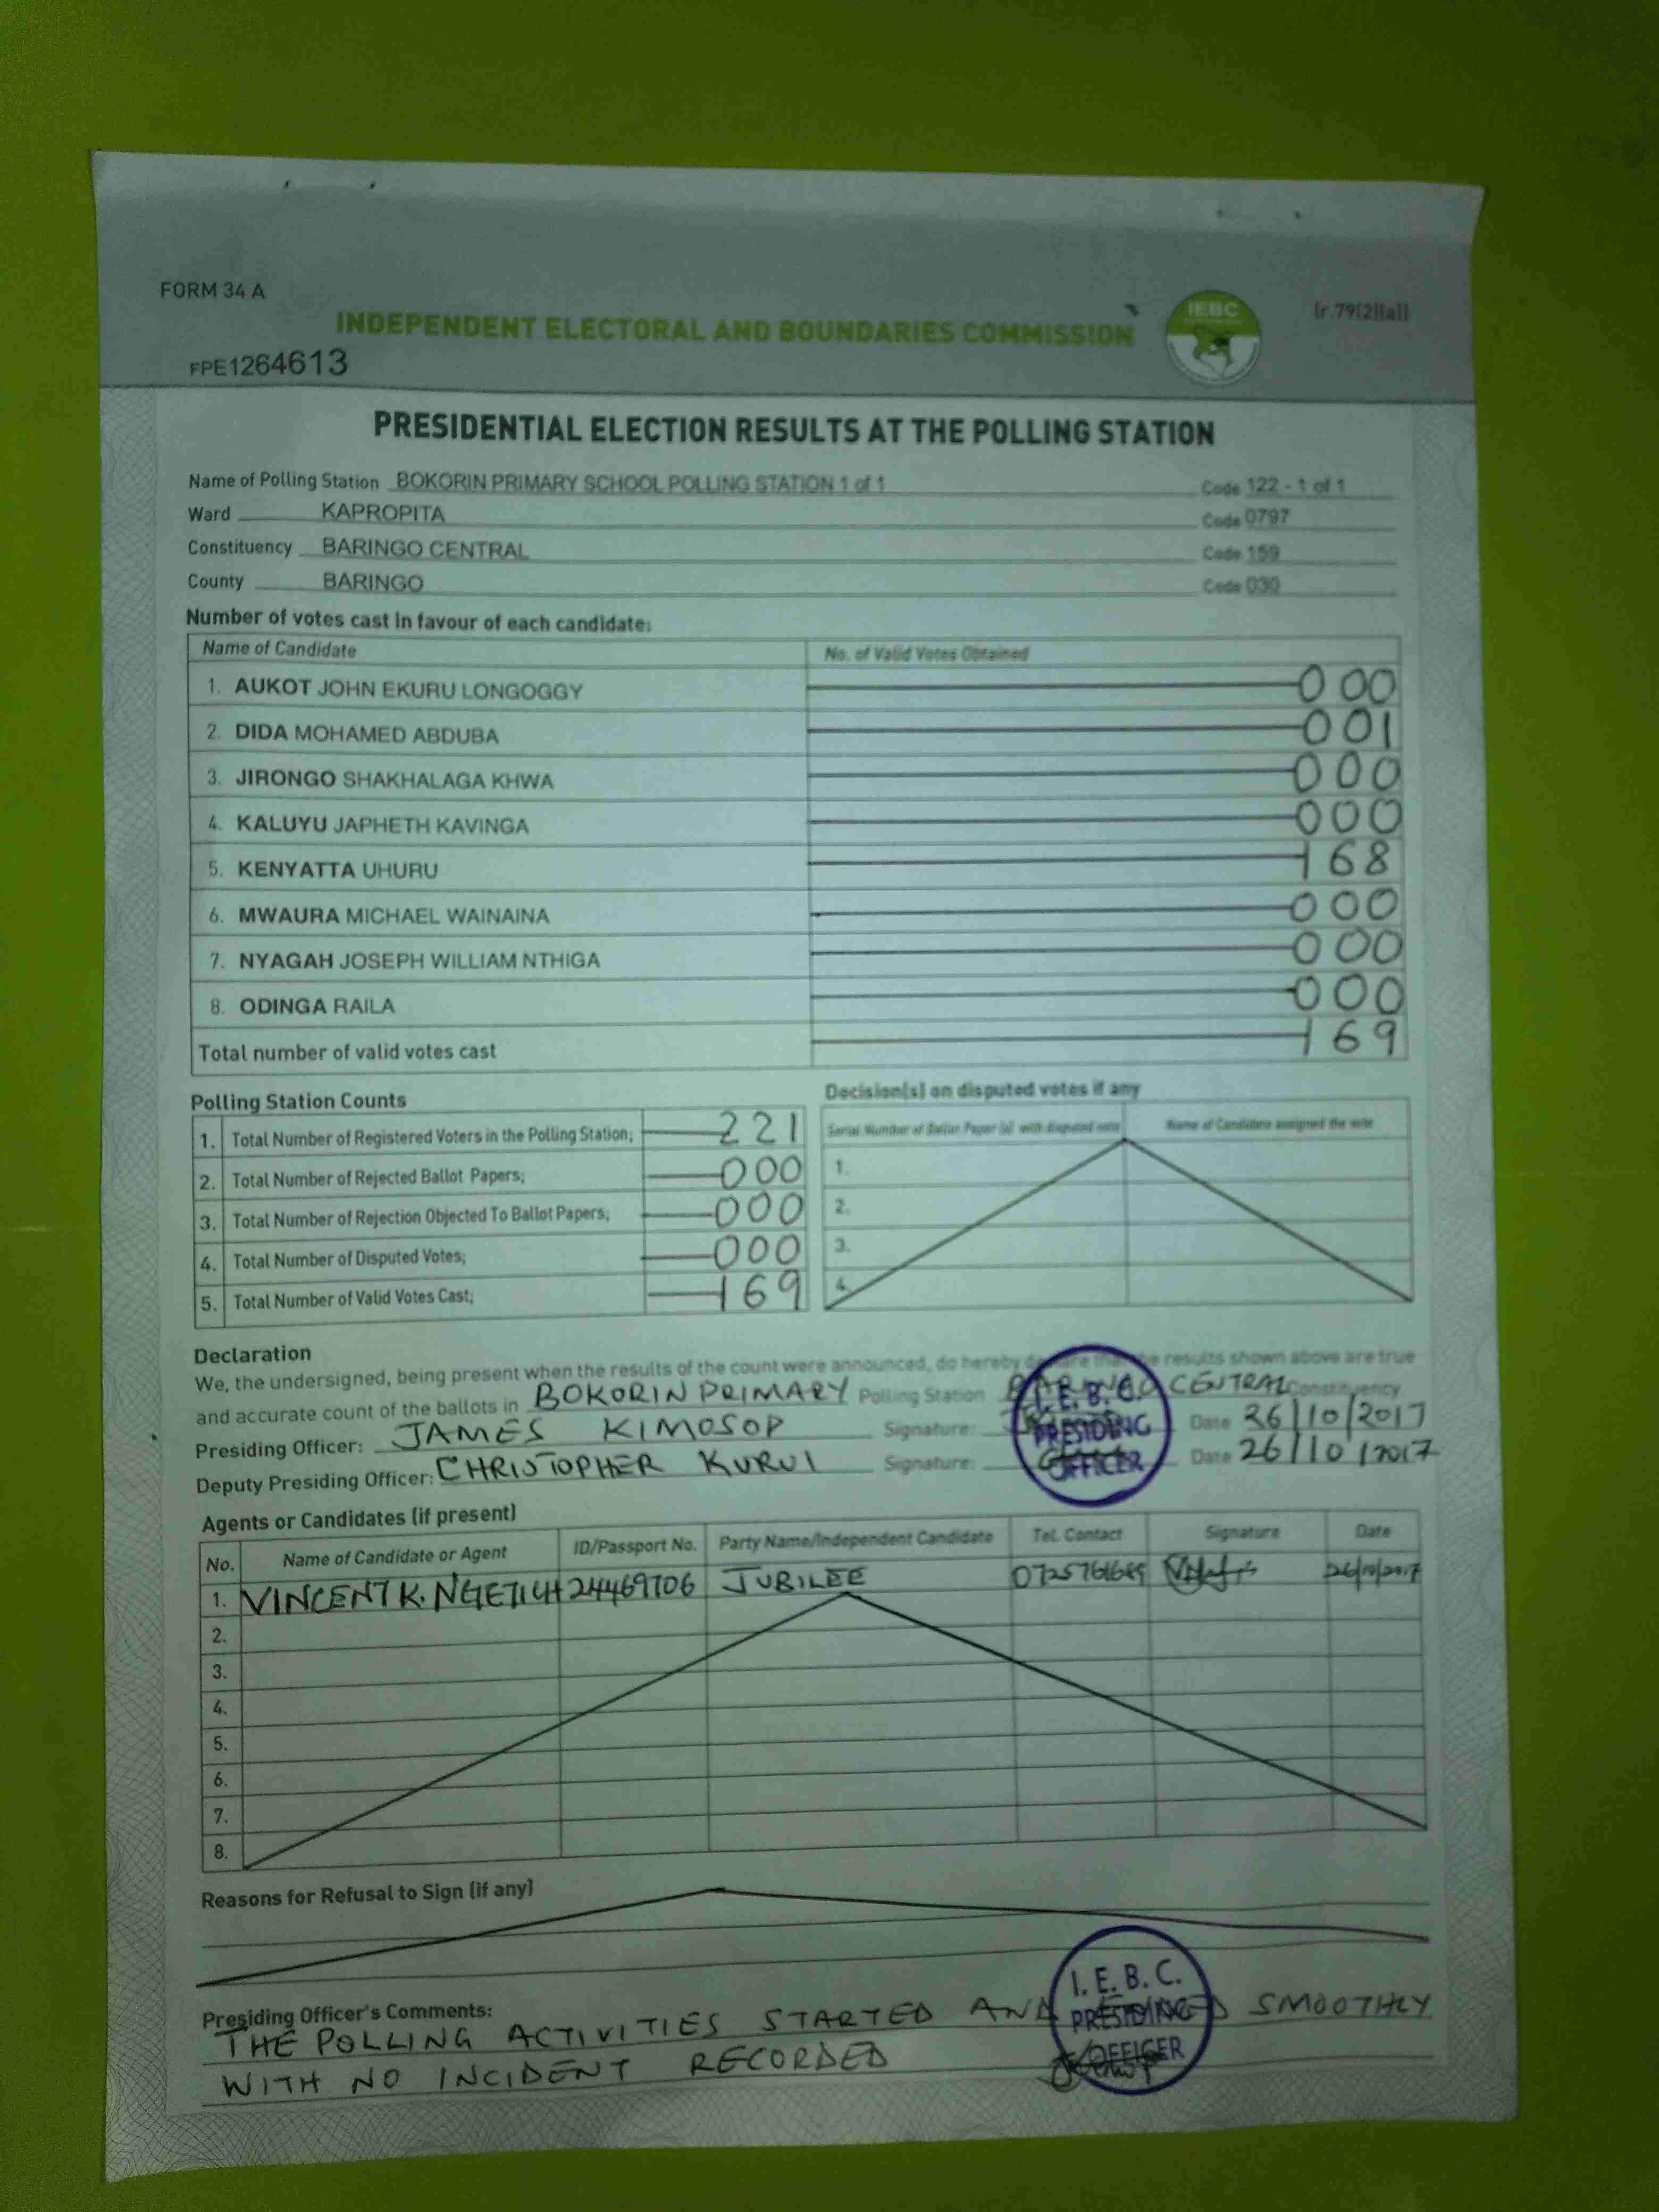 FORM 34 A
[r.79(2)(a)]
INDEPENDENT ELECTORAL AND BOUNDARIES COMMISSION
IEBC
FPE1264613
PRESIDENTIAL ELECTION RESULTS AT THE POLLING STATION
Name of Polling Station BOKORIN PRIMARY SCHOOL POLLING STATION 1 of 1 Code 122 - 1 of 1
Ward KAPROPITA Code 0797
Constituency BARINGO CENTRAL Code 159
County BARINGO Code 030
Number of votes cast in favour of each candidate:
Name of Candidate No. of Valid Votes Obtained
1. AUKOT JOHN EKURU LONGOGGY 000
2. DIDA MOHAMED ABDUBA 001
3. JIRONGO SHAKHALAGA KHWA 000
4. KALUYU JAPHETH KAVINGA 000
5. KENYATTA UHURU 168
6. MWAURA MICHAEL WAINAINA 000
7. NYAGAH JOSEPH WILLIAM NTHIGA 000
8. ODINGA RAILA 000
Total number of valid votes cast 169
Polling Station Counts
1. Total Number of Registered Voters in the Polling Station; 221
2. Total Number of Rejected Ballot Papers; 000
3. Total Number of Rejection Objected To Ballot Papers; 000
4. Total Number of Disputed Votes; 000
5. Total Number of Valid Votes Cast; 169
Decision(s) on disputed votes if any
Serial Number of Ballot Paper (s) with disputed vote Name of Candidate assigned the vote
1.
2.
3.
4.
Declaration
We, the undersigned, being present when the results of the count were announced, do hereby declare that the results shown above are true
and accurate count of the ballots in BOKORIN PRIMARY Polling Station BARINGO CENTRAL Constituency
Presiding Officer: JAMES KIMOSOP Signature: Date 26/10/2017
Deputy Presiding Officer: CHRISTOPHER KURUI Signature: Date 26/10/2017
I.E.B.C.
PRESIDING
OFFICER
Agents or Candidates (if present)
No. Name of Candidate or Agent ID/Passport No. Party Name/Independent Candidate Tel. Contact Signature Date
1. VINCENT K. NGETICH 24469706 JUBILEE 26/10/2017
2.
3.
4.
5.
6.
7.
8.
Reasons for Refusal to Sign (if any)
Presiding Officer's Comments:
THE POLLING ACTIVITIES STARTED AND ENDED SMOOTHLY
WITH NO INCIDENT RECORDED
I.E.B.C.
PRESIDING
OFFICER